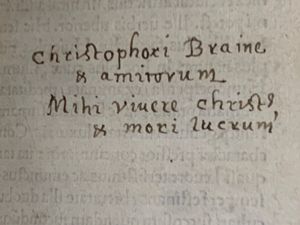 Christophori Braine
& amicorum
Mihi viuere christꝰ
& mori lucrum,